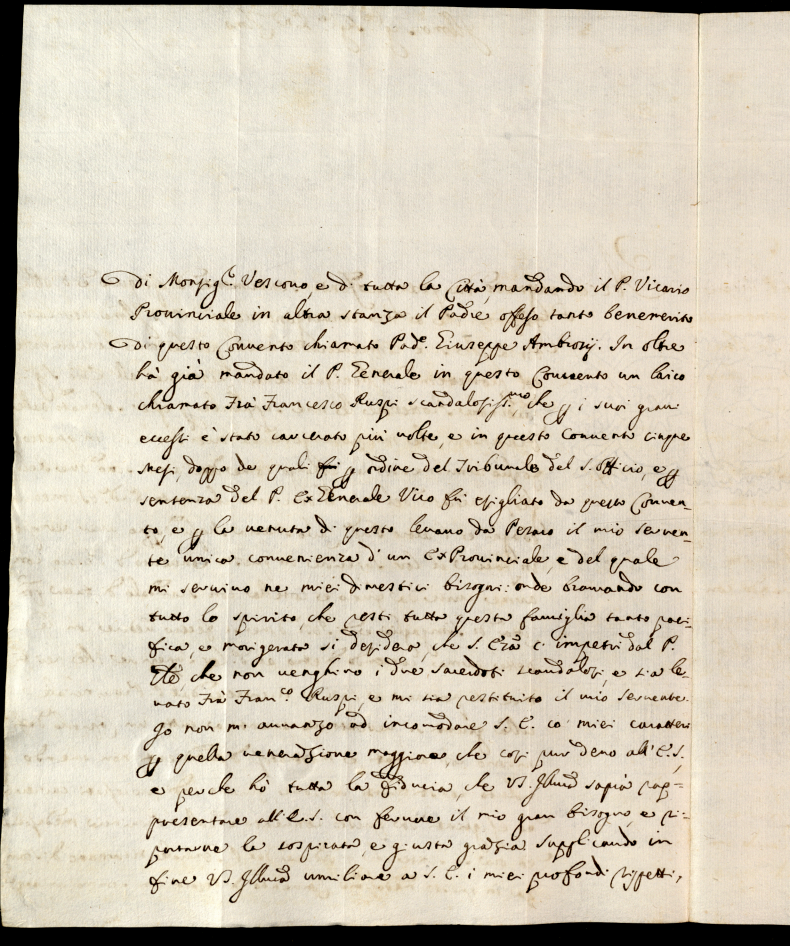 di Monsig.r Vescovo, e di tutta la Città, mandando il P. Vicario
Provinciale in altra stanza il Padre offeso tanto benemerito
di questo Convento chiamato Pad.e Giuseppe Ambrosij. In oltre
hà già mandato il P. Generale in questo Convento un laico
chiamato Frà Francesco Ruspi scandalosiss.mo, che p i suoi gravi
eccessi è stato carcerato più volte, e in questo Convento cinque
mesi, doppo de quali fù p ordine del Tribunale del S. Officio, e p
sentenza del P. ExGenerale Vico fù esigliato da questo Conven-
to, e p la venuta di questo levano da Pesaro il mio serven-
te unica convenienza d'un ExProvinciale, e del quale
mi servivo ne miei dimestici bisogni: onde bramando con
tutto lo spirito, che resti tutta questa famiglia tanto paci-
fica, e morigerata si desidera, che S. Eza ci impetri dal P.
Gle, che non venghino i due sacerdoti scandalosi, e sia le-
vato Frà Fran.co Ruspi, e mi sia restituito il mio servente.
Io non m'avvanzo ad incomodare S. E. co' miei caratteri
p quella venerazione maggiore che così pur devo all'E. S.,
e perche hò tutta la fiducia, che VS. Illma saprà rap-
presentare all'E. S. con fervore il mio gran bisogno, e ri-
portarne la sospirata, e giusta grazia supplicando in
fine VS. Illma umiliare a S. E. i miei profondi rispetti,